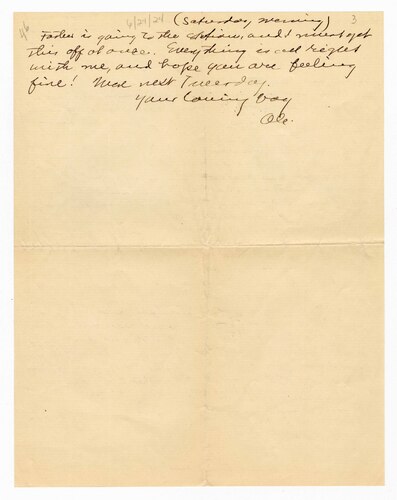 6/29/24 (Saturday, morning) 3
Father is going to the station, and I must get
this off at once. Everything is all right
with me, and hope you are feeling
fine! next Tuesday.
Your loving boy